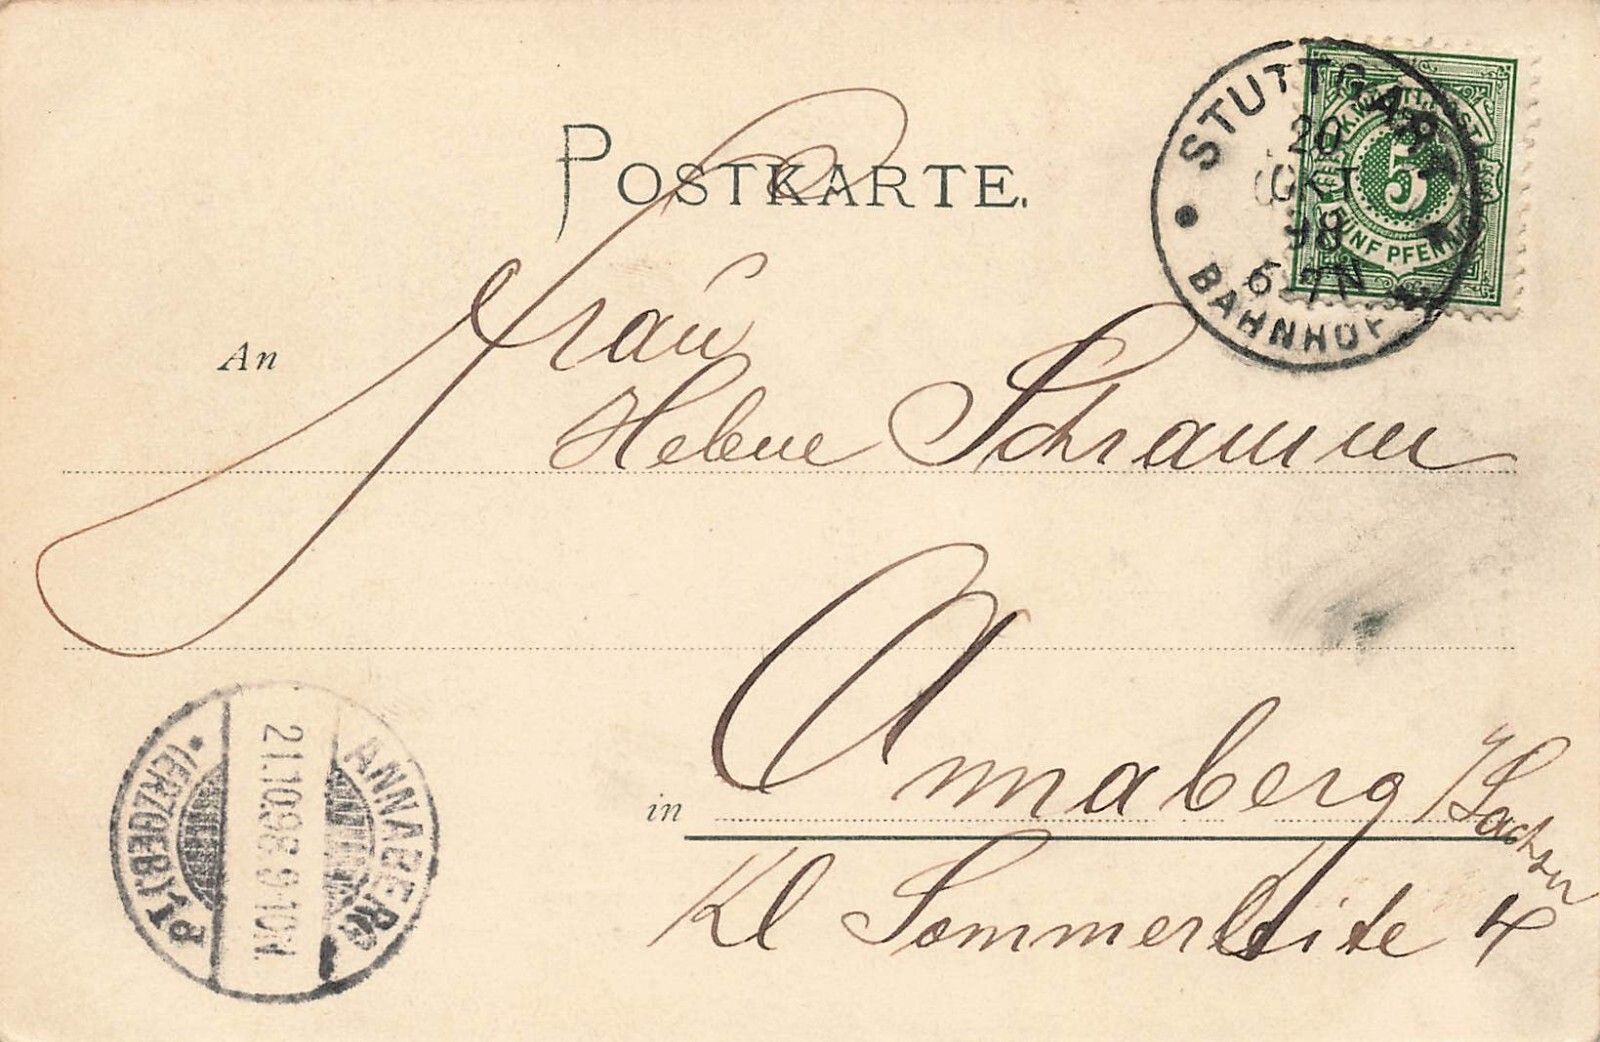 POSTKARTE.
STUTTGART
20
OKT
98
6-7 N
BAHNHOF
5
FÜNF PFENNIG
An
Frau
Helene Schramm
in
Annaberg i/Sachsen
Kl Sommerleite 4
ANNABERG
21.10.98.9-10N.
(ERZGEB.) 1
a